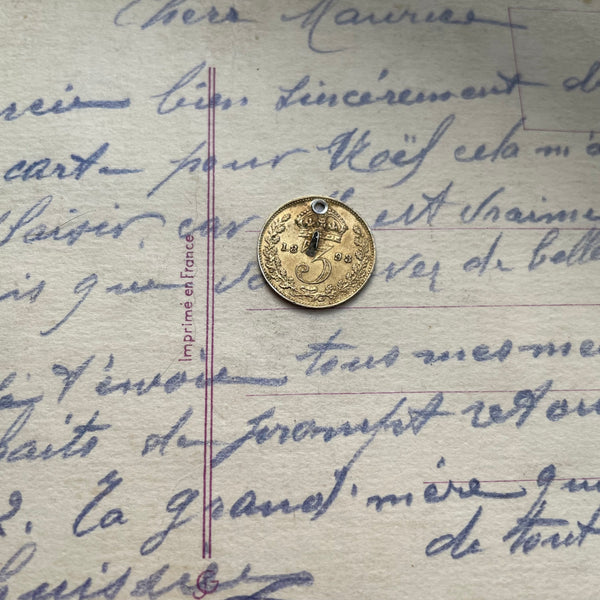 Cherr Maurice
bien sincèrement
carte pour Noël cela m'a
plaisir, car est vraime
que de belle
t'envoie tous mes me
haits de prompt retou
2. Ta grand'mère qu
de tout
Imprimé en France
18 93
3